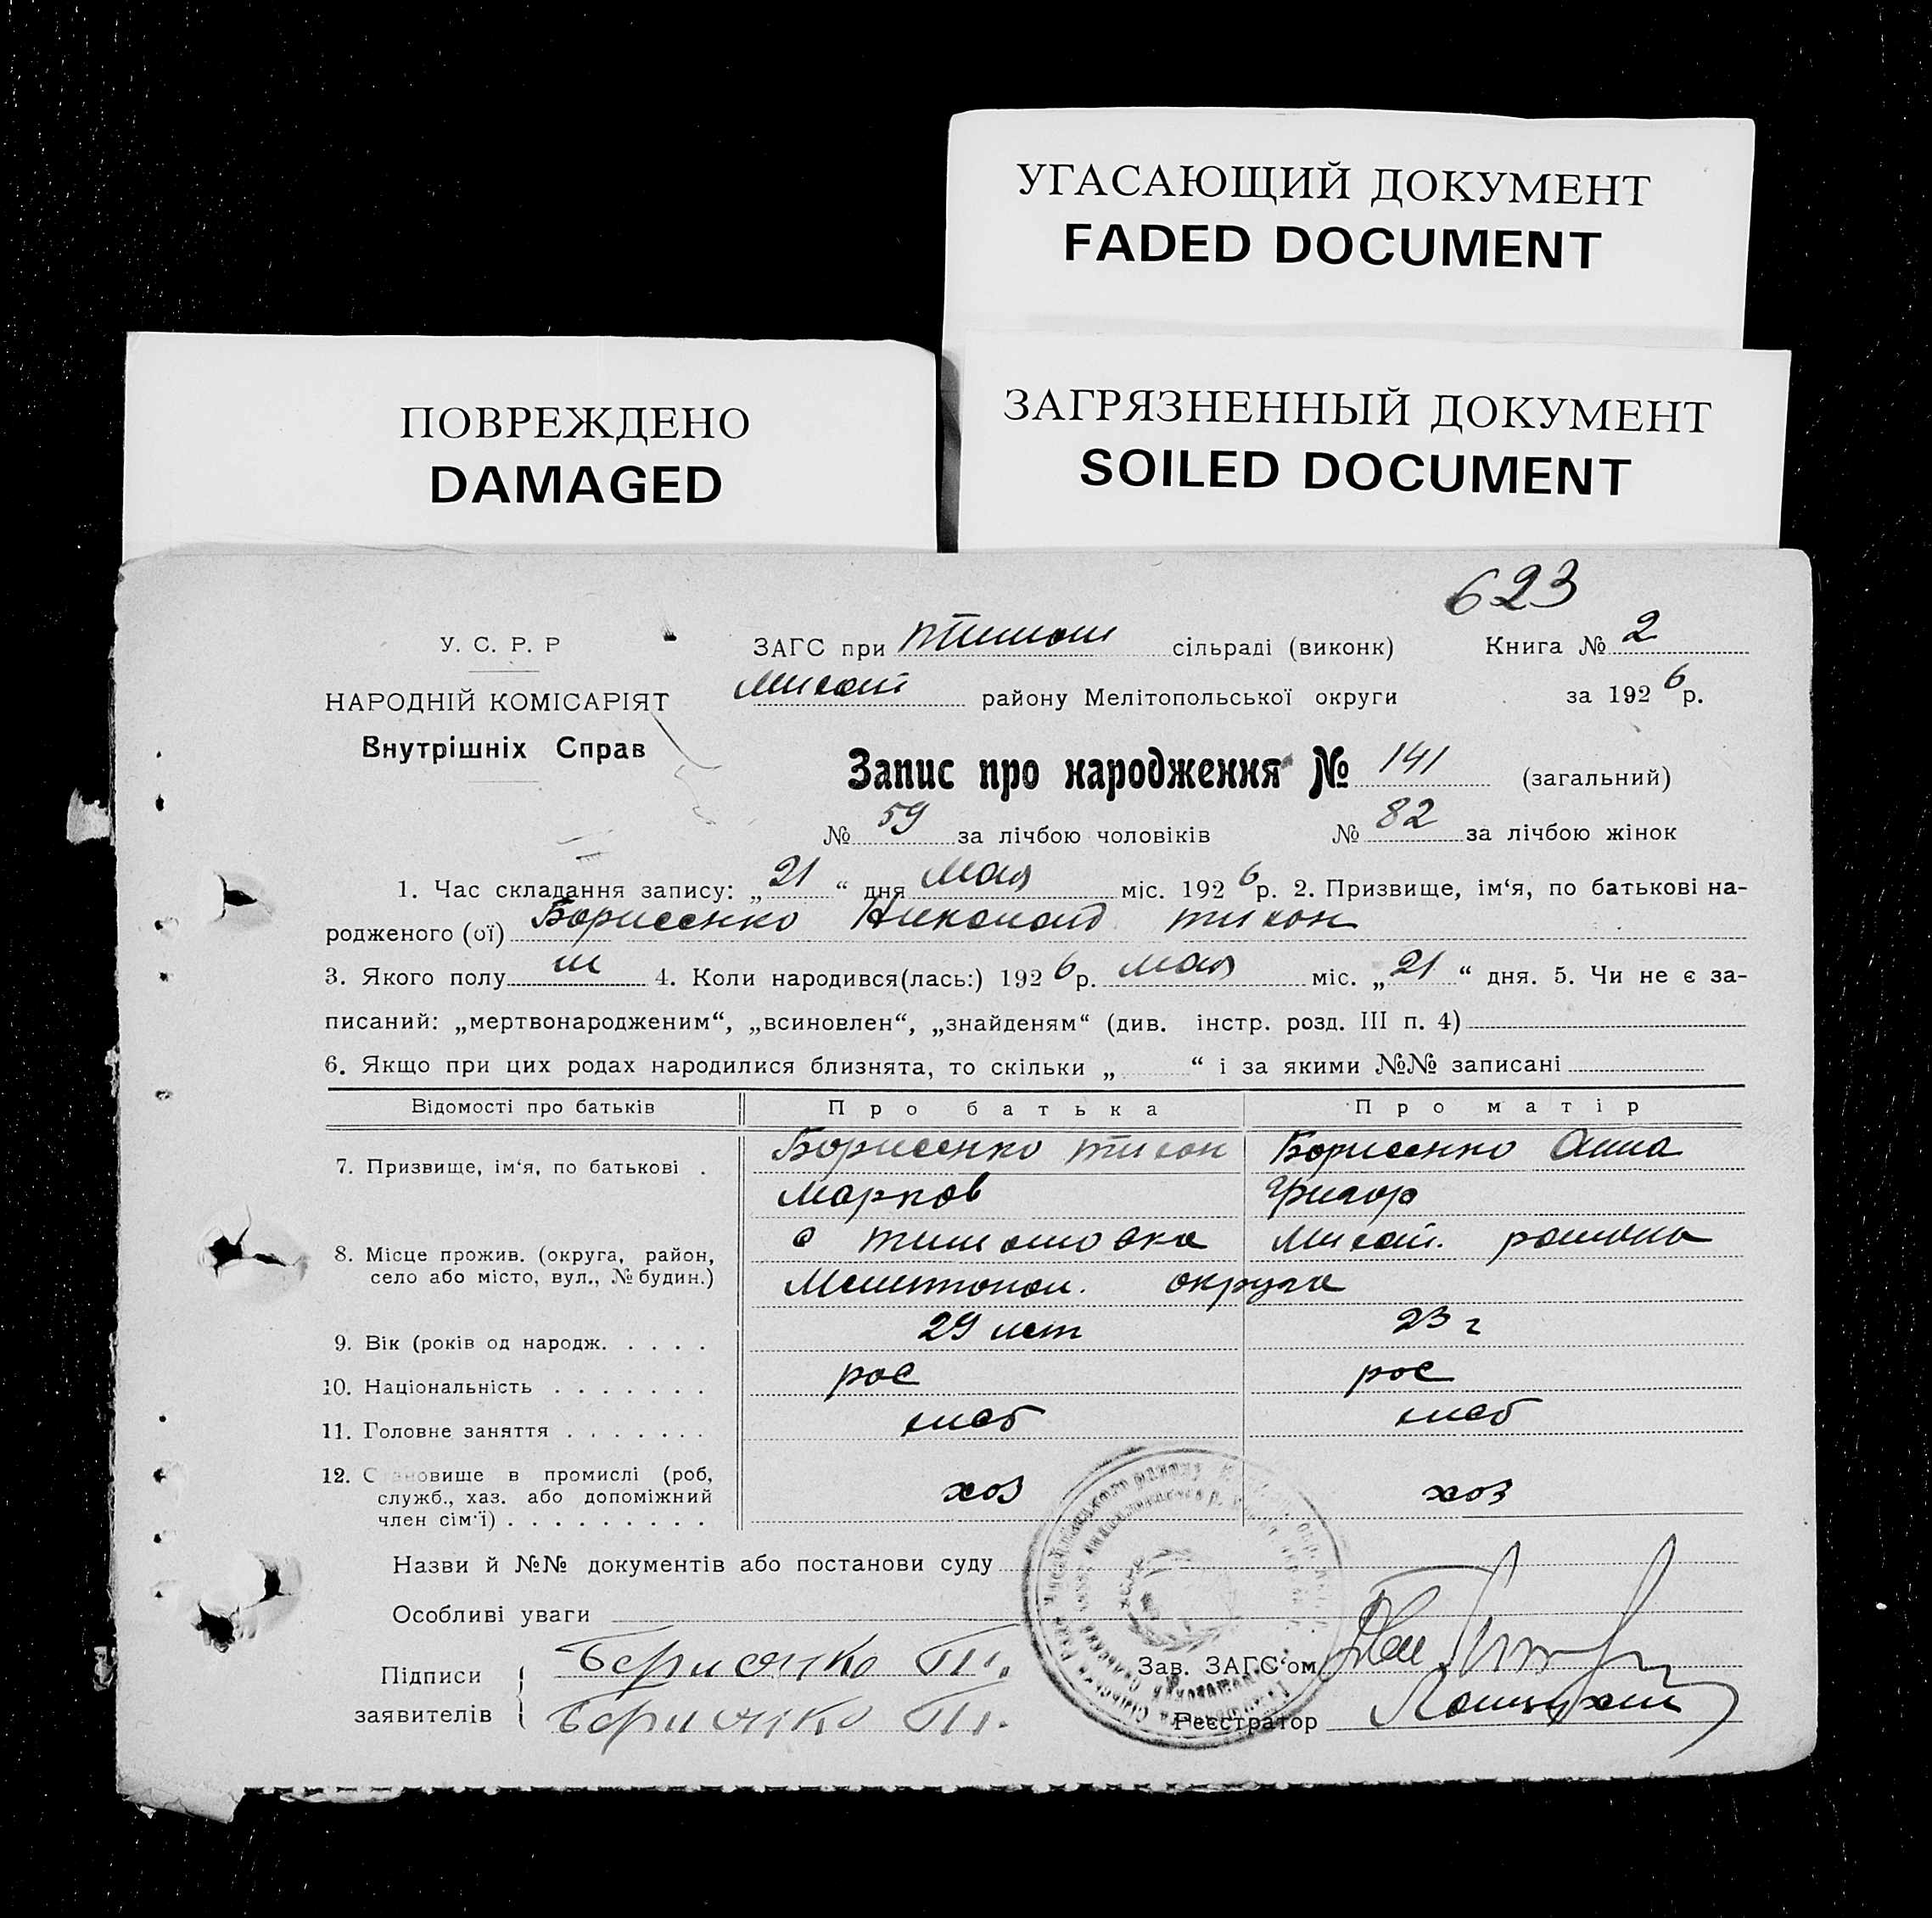 УГАСАЮЩИЙ ДОКУМЕНТ
FADED DOCUMENT
ПОВРЕЖДЕНО
DAMAGED
ЗАГРЯЗНЕННЫЙ ДОКУМЕНТ
SOILED DOCUMENT
623
У. С. Р. Р
НАРОДНІЙ КОМІСАРІЯТ
Внутрішніх Справ
ЗАГС при сільраді (виконк) Книга № 2
району Мелітопольської округи за 1926 р.
Запис про народження № 141 (загальний)
№ 59 за лічбою чоловіків № 82 за лічбою жінок
1. Час складання запису: „21“ дня Мая міс. 1926 р. 2. Призвище, ім‘я, по батькові на-
родженого (ої) Борисенко Николай Тихон
3. Якого полу м 4. Коли народився(лась:) 1926 р. Мая міс. „21“ дня. 5. Чи не є за-
писаний: „мертвонародженим“, „всиновлен“, „знайденям“ (див. інстр. розд. III п. 4)
6. Якщо при цих родах народилися близнята, то скільки „ “ і за якими №№ записані
Відомості про батьків Про батька Про матір
7. Призвище, ім‘я, по батькові . Борисенко Тихон Борисенко Анна
Марков Григор
8. Місце прожив. (округа, район, село або місто, вул., № будин.) с Тимошовка Михай. района
Мелитопол. округа
9. Вік (років од народж. . . . . 29 лет 23 г
10. Національність . . . . . . . рос рос
11. Головне заняття . . . . . . . хлеб хлеб
12. Становище в промислі (роб,
служб., хаз. або допоміжний
член сім‘ї) . . . . . . . . . хоз хоз
Назви й №№ документів або постанови суду
Особливі уваги
Підписи
заявителів
Борисенко Ти.
Борисенко Ти.
Зав. ЗАГС‘ом
Реєстратор